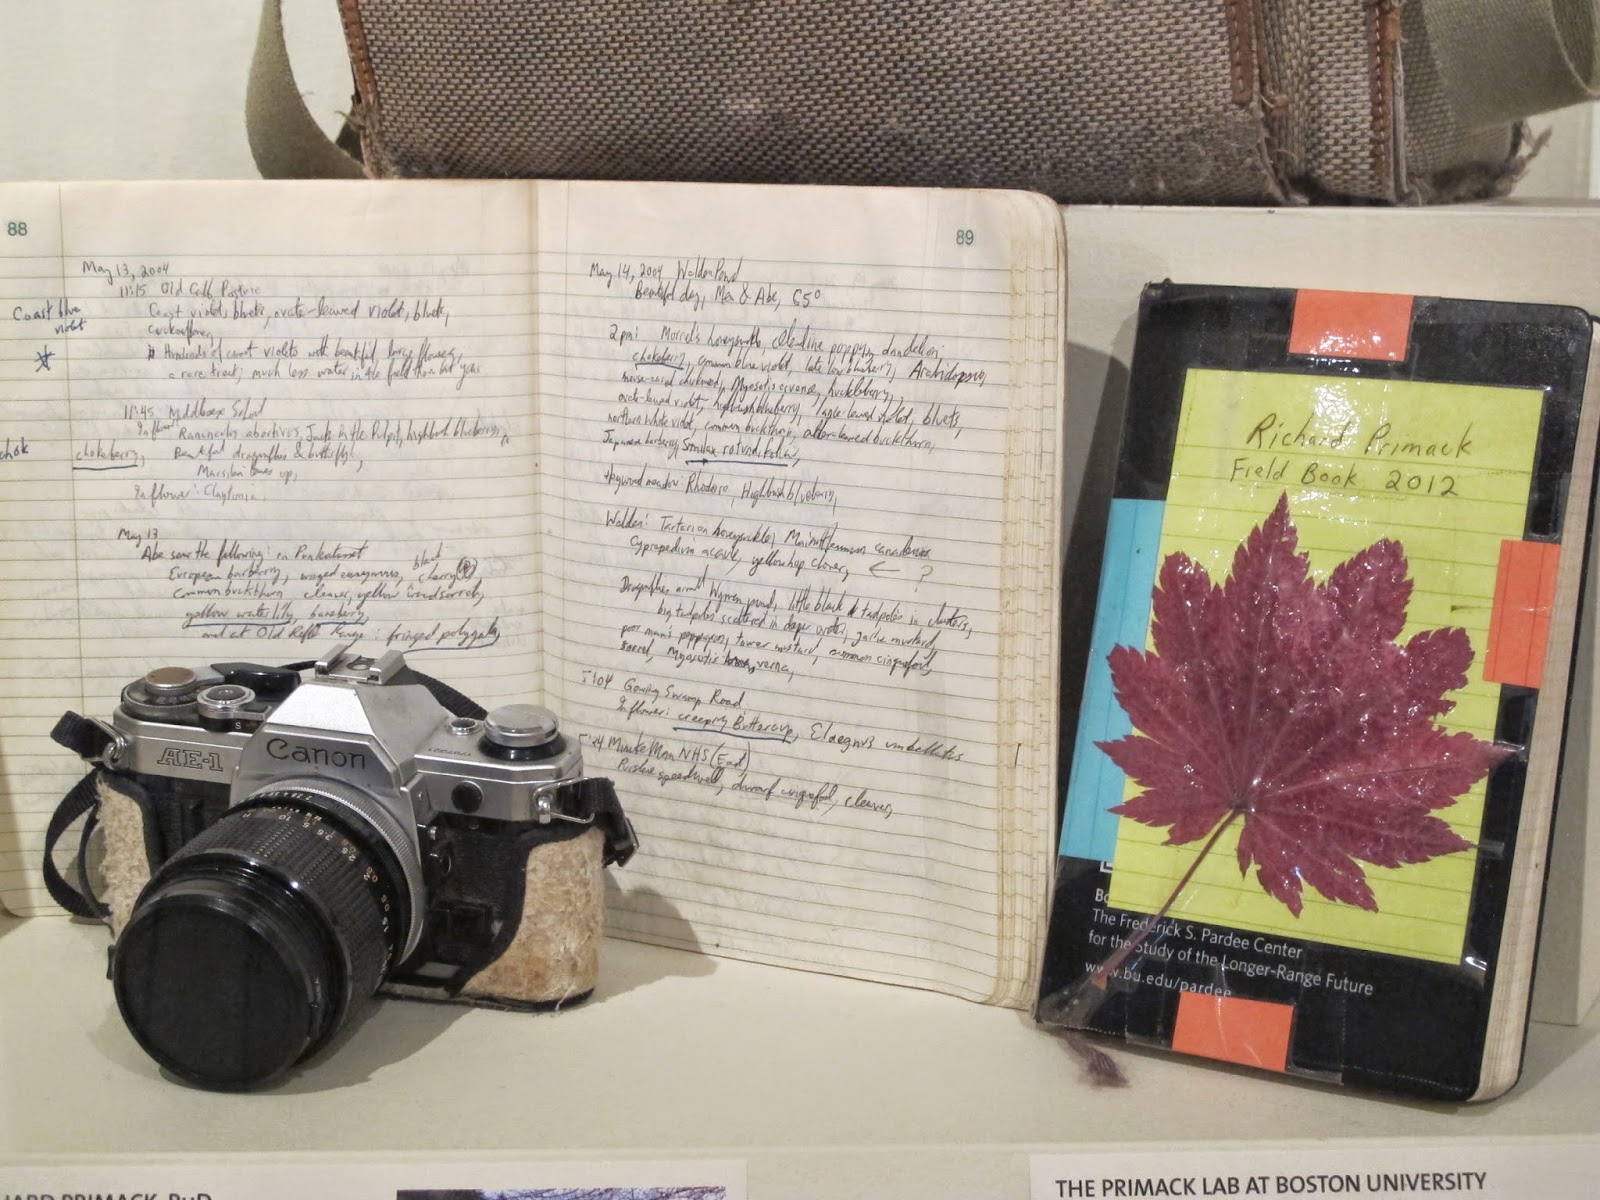 88
May 13, 2004
11:15 Old Calf Pasture
Coast blue
violet
Coast violet, bluets, ovate-leaved violet, bluets,
cuckooflower,
Hundreds of coast violets with beautiful, large flowers,
a rare treat; much less water in the field than last year
11:45 Middlesex School
In flower: Ranunculus abortivus, Jack in the Pulpit, highbush blueberry,
chok
chokeberry, Beautiful dragonflies & butterfly,
up,
In flower: Claytonia
May 13
Abe saw the following: on Punkatasset
European barberry, winged euonymus, black cherry
common buckthorn cleavers, yellow wood sorrel,
yellow water lily, bayberry
and at Old Rifle Range: fringed polygala,
89
May 14, 2004 Walden Pond
Beautiful day, Me & Abe, 65°
2pm: Morrel's honeysuckle, celandine poppy, dandelion,
chokeberry, common blue violet, late low blueberry, Arabidopsis,
mouse-eared chickweed, Myosotis arvense, huckleberry,
ovate-leaved violet, highbush blueberry, lance-leaved violet, bluets,
northern white violet, common buckthorn, alternate-leaved buckthorn,
Japanese barberry, Smilax rotundifolia,
Heywood meadow: Rhodora, Highbush blueberry,
Walden: Tartarian honeysuckle, Maianthemum canadense
Cypripedium acaule, yellow hop clover, ← ?
Dragonflies around Wyman pond, little black tadpoles in clusters,
big tadpoles scattered in deeper water, garlic mustard,
poor man's peppergrass, tower mustard, common cinquefoil,
sorrel, Myosotis verna,
5:04 Gowing Swamp Road,
In flower: creeping Buttercup, Elaegnus umbellatis
5:24 Minute Man NHS (East)
Purslane speedwell, dwarf cinquefoil, cleaver,
AE-1
Canon
Richard Primack
Field Book 2012
Bo
The Frederick S. Pardee Center
for the Study of the Longer-Range Future
www.bu.edu/pardee
PRIMACK, PHD
THE PRIMACK LAB AT BOSTON UNIVERSITY